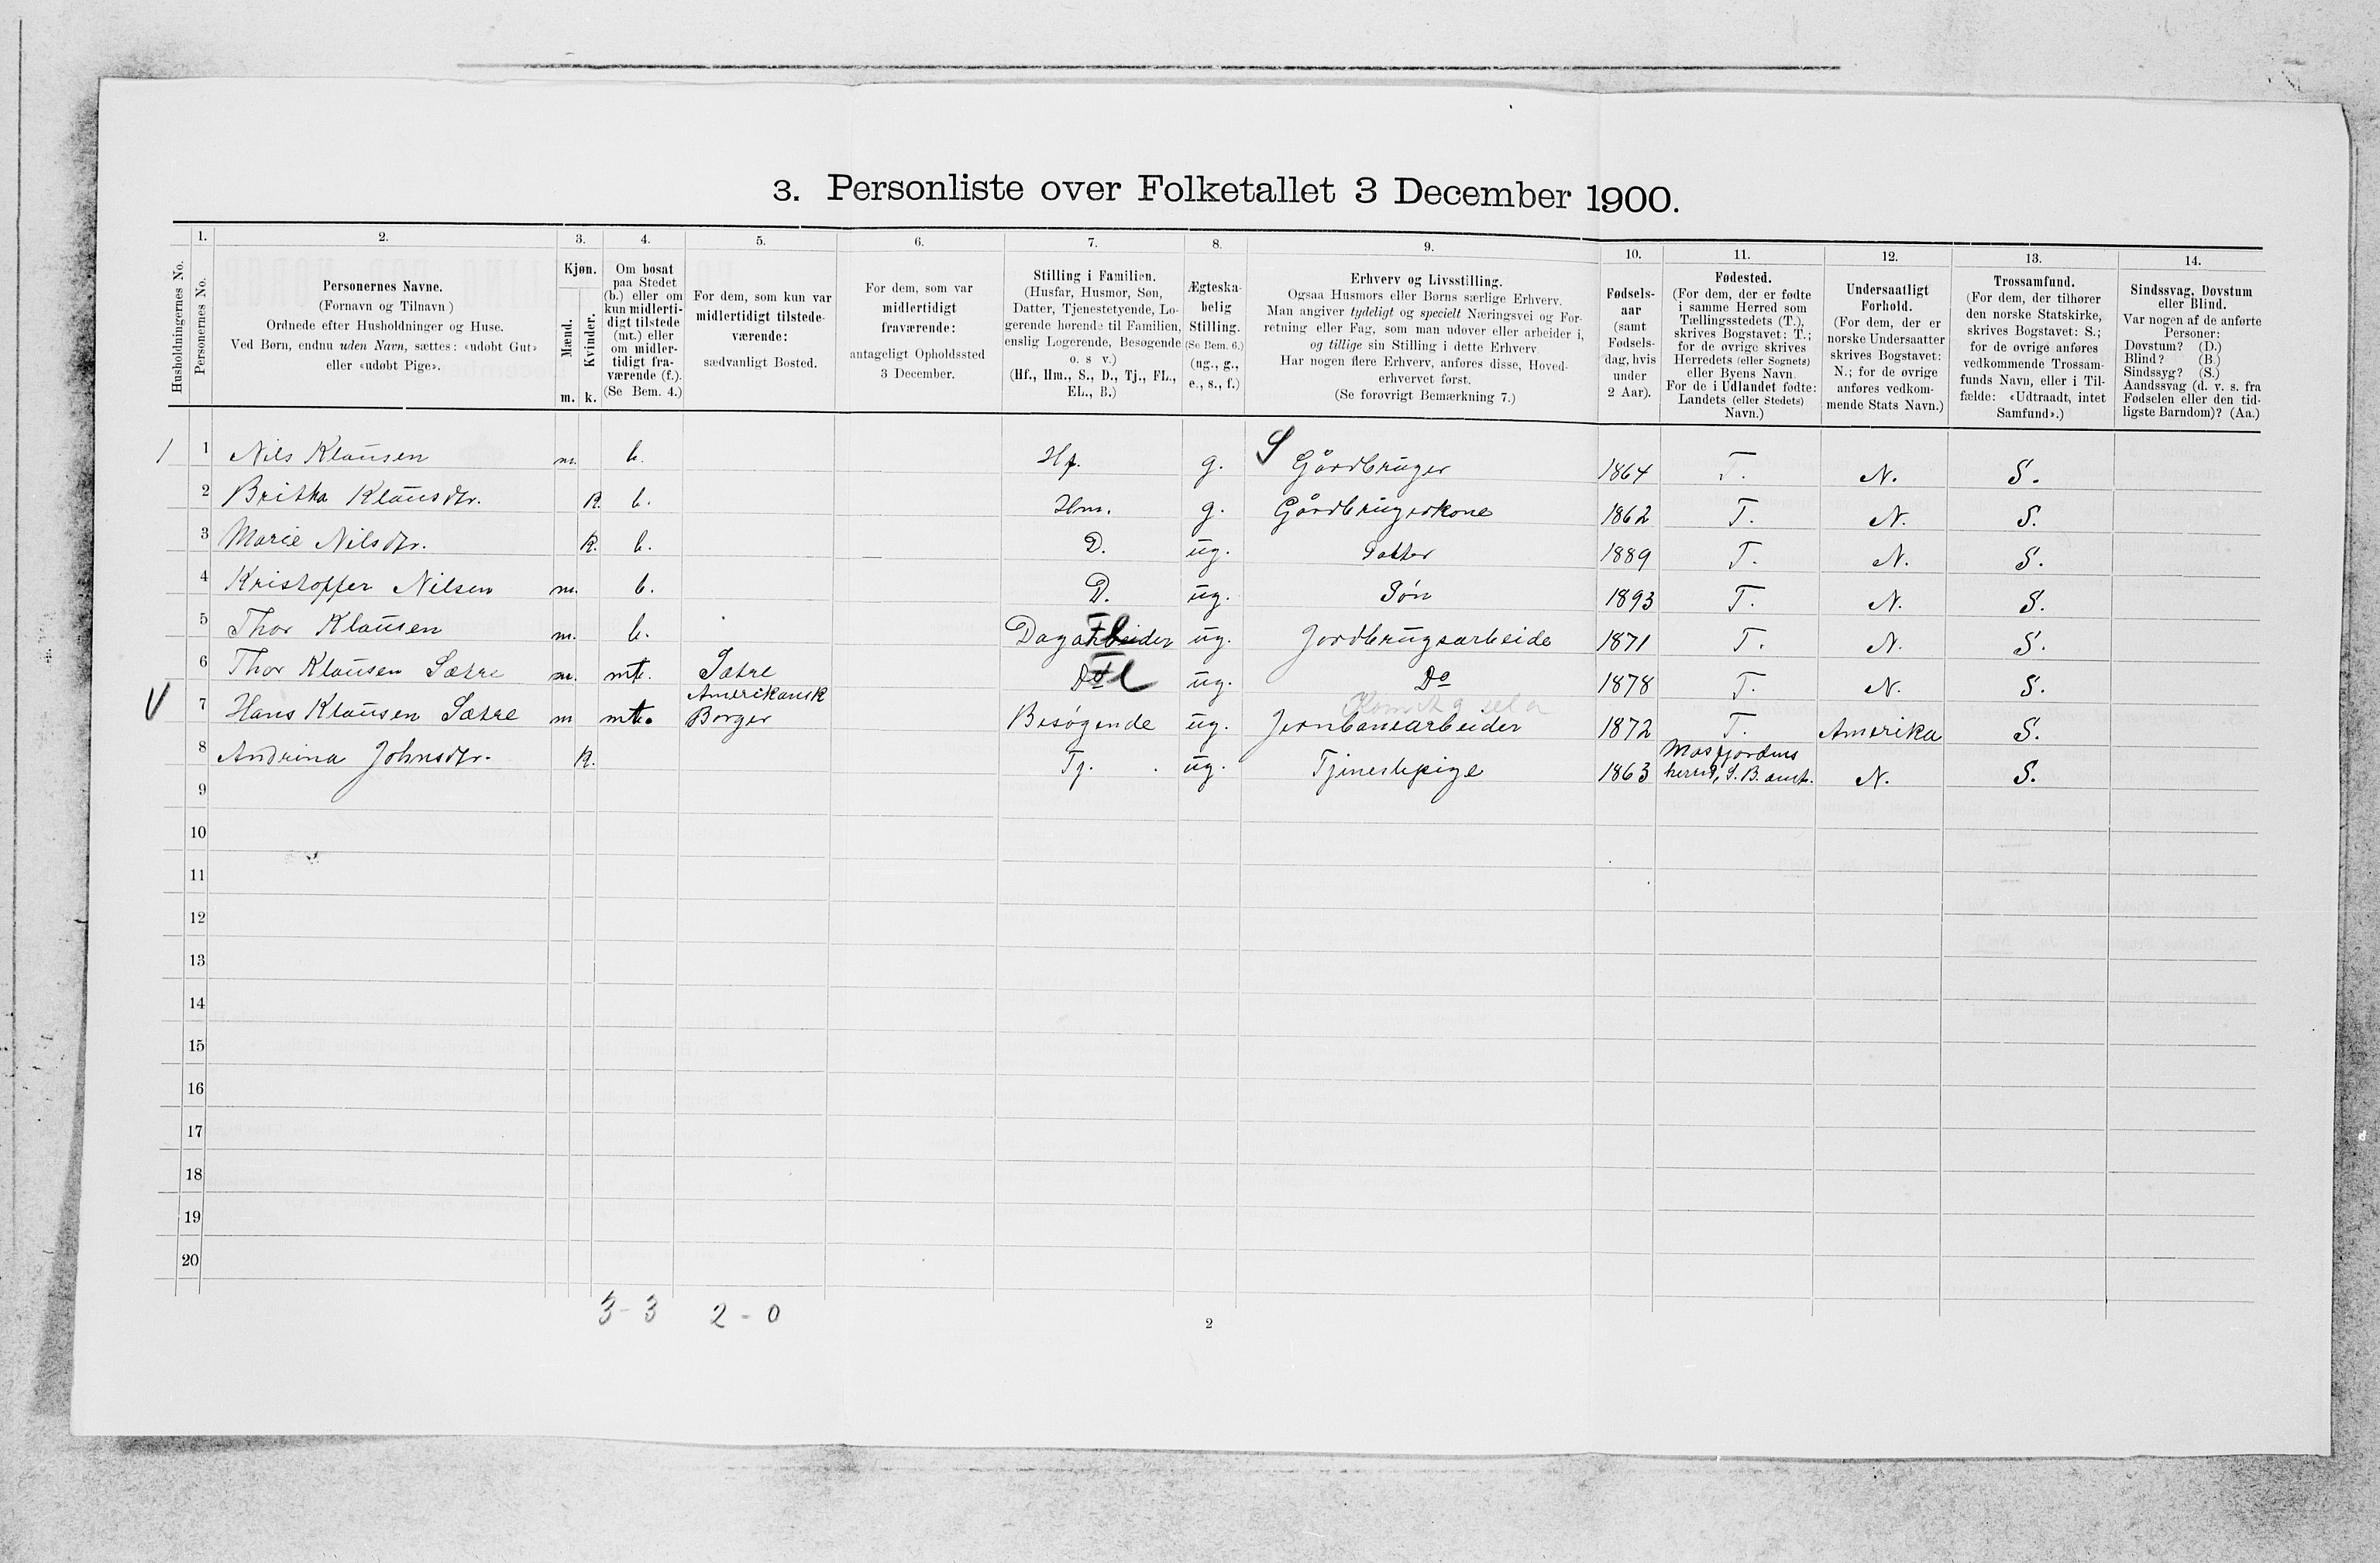 3. Personliste over Folketallet 3 December 1900.
1. 2. 3. 4. 5. 6. 7. 8. 9. 10. 11. 12. 13. 14.
Husholdningernes No.
Personernes No.
Personernes Navne.
(Fornavn og Tilnavn)
Ordnede efter Husholdninger og Huse.
Ved Børn, endnu uden Navn, sættes: «udøbt Gut»
eller «udøbt Pige».
Kjøn.
Mænd.
Kvinder.
m. k.
Om bosat
paa Stedet
(b.) eller om
kun midlerti-
digt tilstede
(mt.) eller
om midler-
tidigt fra-
værende (f.).
(Se Bem. 4.)
For dem, som kun var
midlertidigt tilstede-
værende:
sædvanligt Bosted.
For dem, som var
midlertidigt
fraværende:
antageligt Opholdssted
3 December.
Stilling i Familien.
(Husfar, Husmor, Søn,
Datter, Tjenestetyende, Lo-
gerende hørende til Familien,
enslig Logerende, Besøgende
o. s v.)
(Hf., Hm., S., D., Tj., FL.,
EL., B.)
Ægteska-
belig
Stilling.
(Se Bem. 6.)
(ug., g.,
e., s., f.)
Erhverv og Livsstilling.
Ogsaa Husmors eller Børns særlige Erhverv.
Man angiver tydeligt og specielt Næringsvei og For-
retning eller Fag, som man udøver eller arbeider i,
og tillige sin Stilling i dette Erhverv
Har nogen flere Erhverv, anføres disse, Hoved-
erhvervet først.
(Se forøvrigt Bemærkning 7.)
Fødsels-
aar
(samt
Fødsels-
dag, hvis
under
2 Aar).
Fødested.
(For dem, der er fødte
i samme Herred som
Tællingsstedets (T.),
skrives Bogstavet: T.;
for de øvrige skrives
Herredets (eller Sognets)
eller Byens Navn.
For de i Udlandet fødte:
Landets (eller Stedets)
Navn.)
Undersaatligt
Forhold.
(For dem, der er
norske Undersaatter
skrives Bogstavet:
N.; for de øvrige
anføres vedkom-
mende Stats Navn.)
Trossamfund.
(For dem, der tilhører
den norske Statskirke,
skrives Bogstavet: S.;
for de øvrige anføres
vedkommende Trossam-
funds Navn, eller i Til-
fælde: «Udtraadt, intet
Samfund».)
Sindssvag, Døvstum
eller Blind.
Var nogen af de anførte
Personer:
Døvstum? (D.)
Blind? (B.)
Sindssyg? (S.)
Aandssvag (d. v. s. fra
Fødselen eller den tid-
ligste Barndom)? (Aa.)
1 1 Nils Klausen m. b. Hf. g. S Gårdbruger 1864 T. N. S.
2 Britha Klausdtr. K. b. Hm. g. Gårdbrugerkone 1862 T. N. S.
3 Marie Nilsdtr. K. b. D. ug. Datter 1889 T. N. S.
4 Kristoffer Nilsen m. b. D. ug. Søn 1893 T. N. S.
5 Thor Klausen m. b. Dagarbeider Fl ug. Jordbrugsarbeide 1871 T. N. S.
6 Thor Klausen Sætre m. mt. Sætre Do Fl ug. Do 1878 T. N. S.
V 7 Hans Klausen Sætre m mt. Amerikansk Borger Besøgende ug. Jernbanearbeider 1872 T. Amerika S.
8 Andrina Johnsdtr. K. Tj. ug. Tjenestepige 1863 Masfjordens herred, S. B. amt. N. S.
9
10
11
12
13
14
15
16
17
18
19
20
3 - 3 2 - 0
2